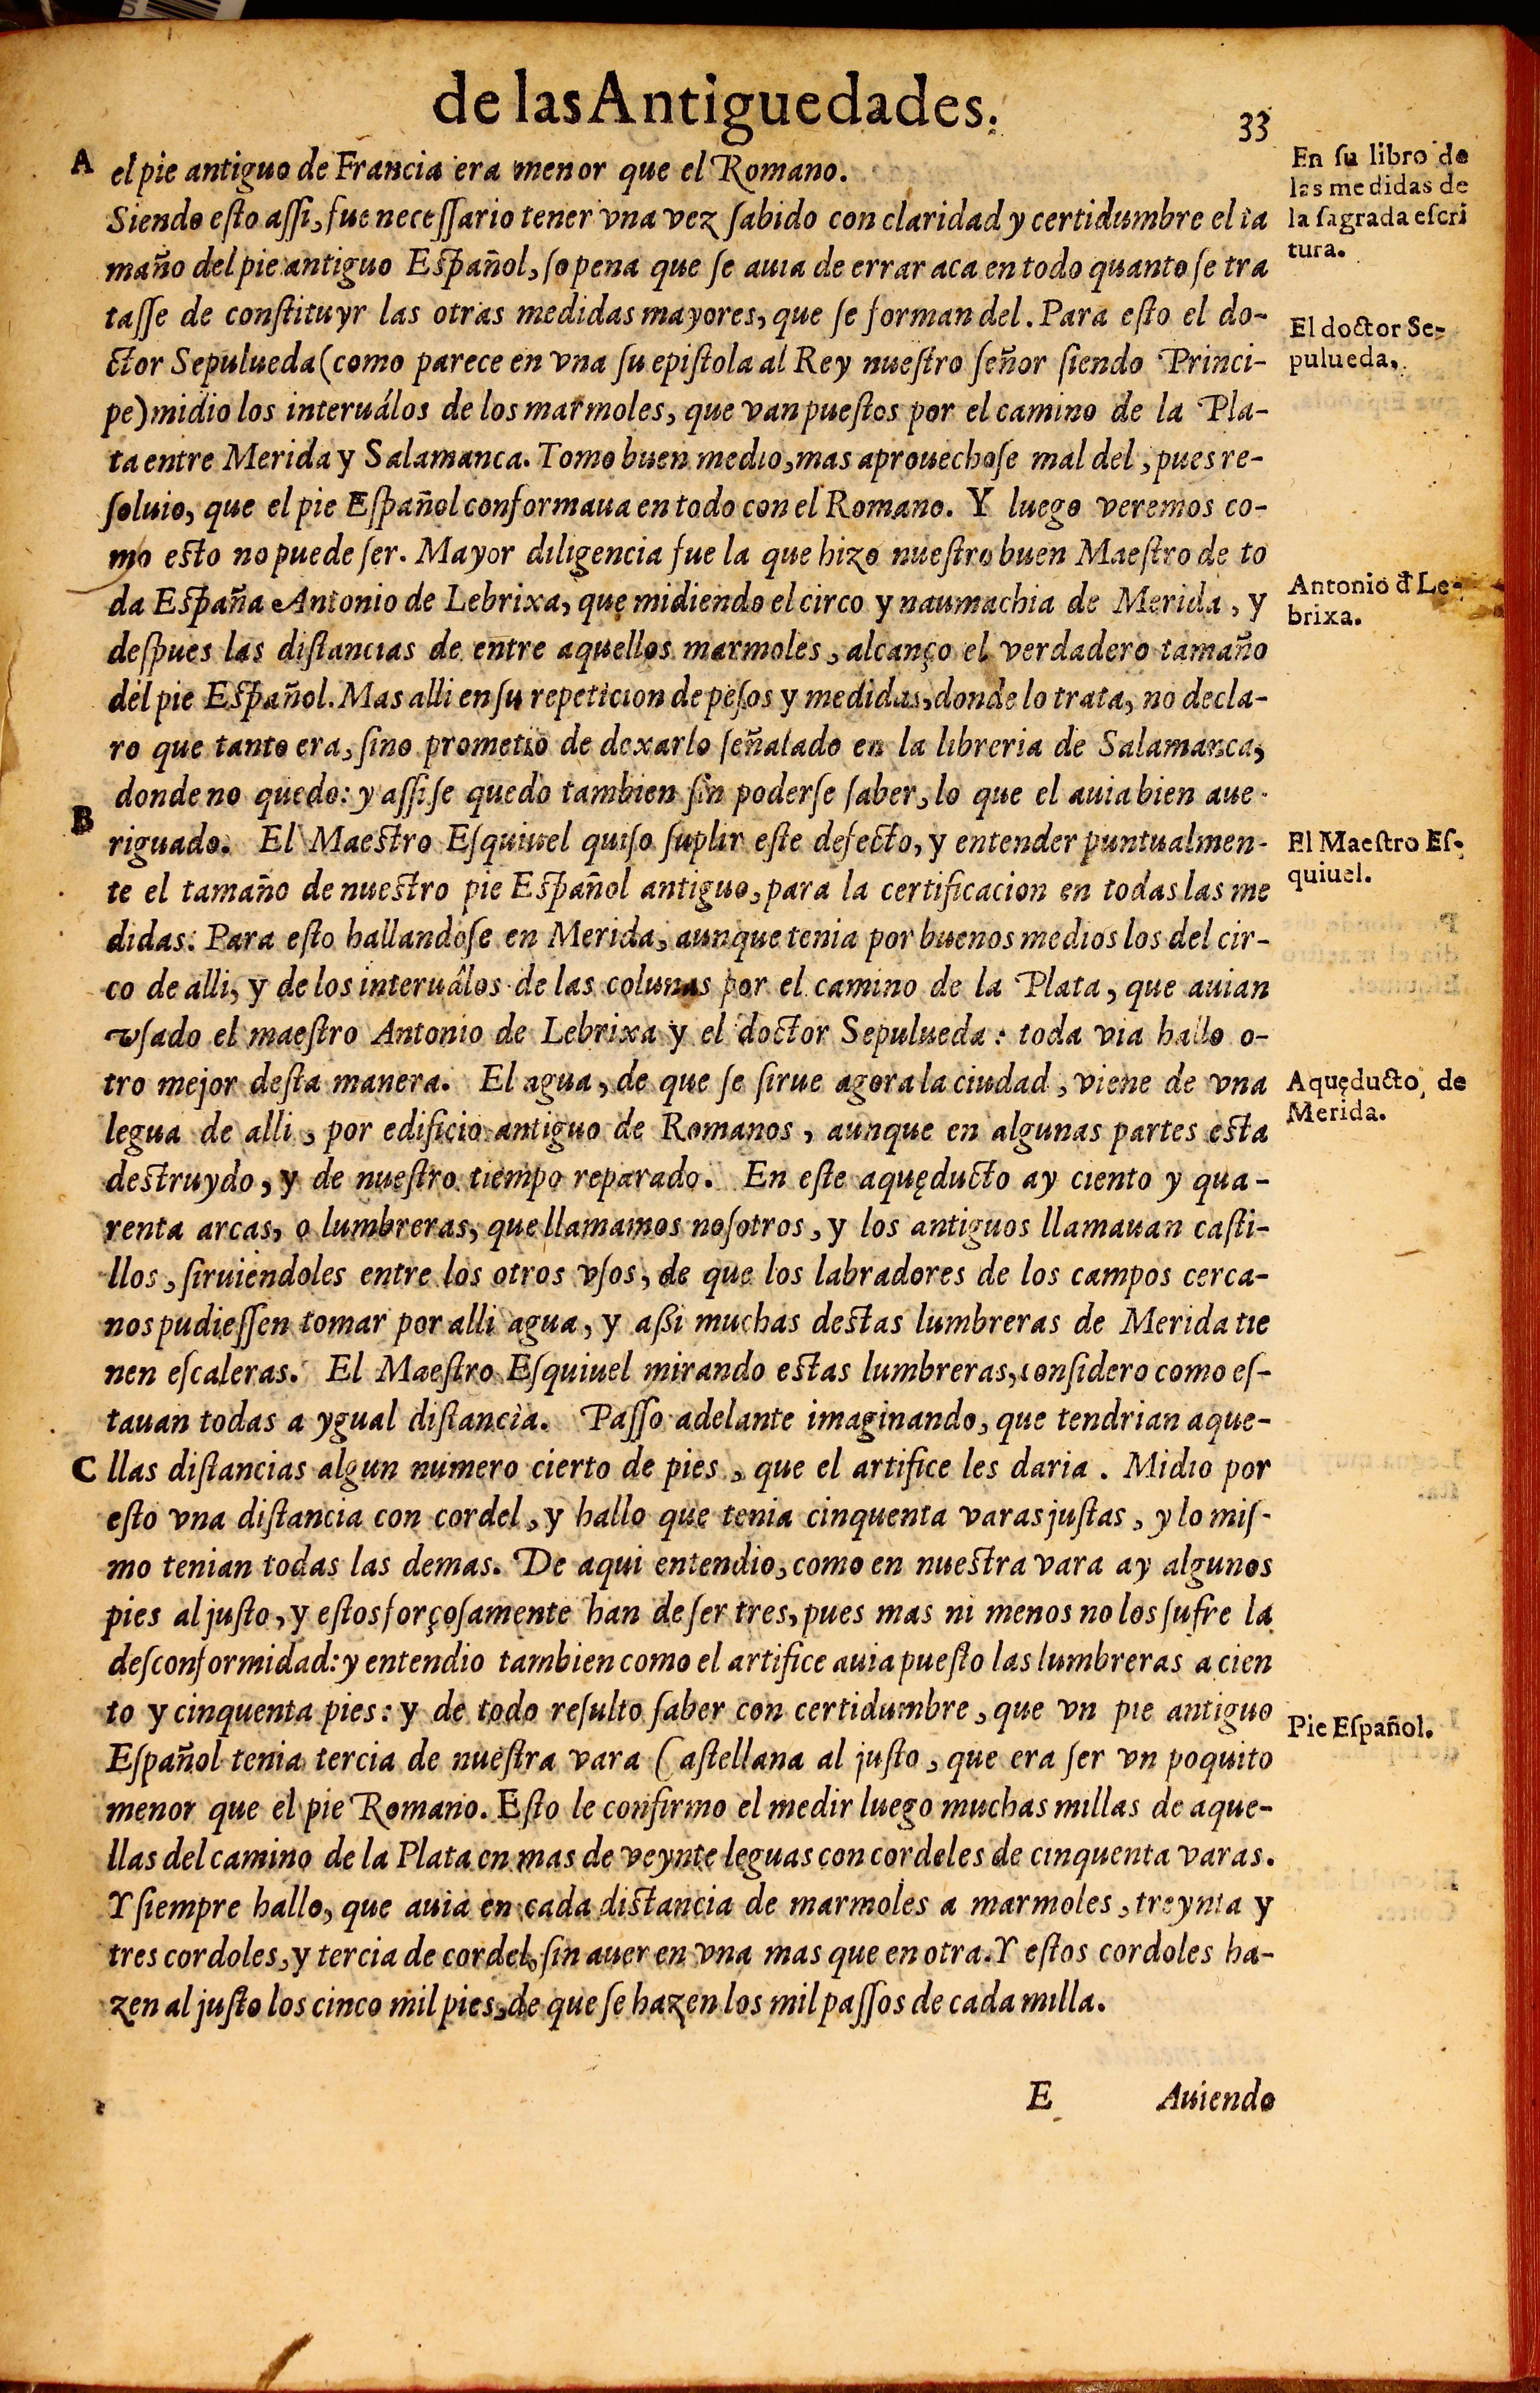 de las Antiguedades.
33
A
el pie antiguo de Francia era menor que el Romano.
Siendo eſto aſſi, fue neceſſario tener vna vez ſabido con claridad y certidumbre el ta
maño del pie antiguo Eſpañol, ſo pena que ſe auia de errar aca en todo quanto ſe tra
taſſe de conſtituyr las otras medidas mayores, que ſe forman del. Para eſto el do-
ctor Sepulueda (como parece en vna ſu epiſtola al Rey nueſtro ſeñor ſiendo Princi-
pe) midio los interuálos de los marmoles, que van pueſtos por el camino de la Pla-
ta entre Merida y Salamanca. Tomo buen medio, mas aprouechoſe mal del, pues re-
ſoluio, que el pie Eſpañol conformaua en todo con el Romano. Y luego veremos co-
mo eſto no puede ſer. Mayor diligencia fue la que hizo nueſtro buen Maeſtro de to
da Eſpaña Antonio de Lebrixa, que midiendo el circo y naumachia de Merida, y
deſpues las diſtancias de entre aquellos marmoles, alcanço el verdadero tamaño
del pie Eſpañol. Mas alli en ſu repeticion de peſos y medidas, donde lo trata, no decla-
ro que tanto era, ſino prometio de dexarlo ſeñalado en la libreria de Salamanca,
donde no quedo: y aſſi ſe quedo tambien ſin poderſe ſaber, lo que el auia bien aue-
B
riguado. El Maeſtro Eſquiuel quiſo ſuplir eſte defecto, y entender puntualmen-
te el tamaño de nueſtro pie Eſpañol antiguo, para la certificacion en todas las me
didas. Para eſto hallandoſe en Merida, aunque tenia por buenos medios los del cir-
co de alli, y de los interuâlos de las colunas por el camino de la Plata, que auian
vſado el maeſtro Antonio de Lebrixa y el doctor Sepulueda: toda via hallo o-
tro mejor deſta manera. El agua, de que ſe ſirue agora la ciudad, viene de vna
legua de alli, por edificio antiguo de Romanos, aunque en algunas partes eſta
deſtruydo, y de nueſtro tiempo reparado. En eſte aquęducto ay ciento y qua-
renta arcas, o lumbreras, que llamamos noſotros, y los antiguos llamauan caſti-
llos, ſiruiendoles entre los otros vſos, de que los labradores de los campos cerca-
nos pudieſſen tomar por alli agua, y aßi muchas deſtas lumbreras de Merida tie
nen eſcaleras. El Maeſtro Eſquiuel mirando eſtas lumbreras, conſidero como eſ-
tauan todas a ygual diſtancia. Paſſo adelante imaginando, que tendrian aque-
C
llas diſtancias algun numero cierto de pies, que el artifice les daria. Midio por
eſto vna diſtancia con cordel, y hallo que tenia cinquenta varas juſtas, y lo miſ-
mo tenian todas las demas. De aqui entendio, como en nueſtra vara ay algunos
pies al juſto, y eſtos forçoſamente han de ſer tres, pues mas ni menos no los ſufre la
deſconformidad: y entendio tambien como el artifice auia pueſto las lumbreras a cien
to y cinquenta pies: y de todo reſulto ſaber con certidumbre, que vn pie antiguo
Eſpañol tenia tercia de nueſtra vara Caſtellana al juſto, que era ſer vn poquito
menor que el pie Romano. Eſto le confirmo el medir luego muchas millas de aque-
llas del camino de la Plata en mas de veynte leguas con cordeles de cinquenta varas.
Y ſiempre hallo, que auia en cada diſtancia de marmoles a marmoles, treynta y
tres cordoles, y tercia de cordel, ſin auer en vna mas que en otra. Y eſtos cordoles ha-
zen al juſto los cinco mil pies, de que ſe hazen los mil paſſos de cada milla.
E
Auiendo
En ſu libro de
las medidas de
la ſagrada eſcri
tura.
El doctor Se-
pulueda.
Antonio đ Le-
brixa.
El Maeſtro Eſ-
quiuel.
Aquęducto de
Merida.
Pie Eſpañol.